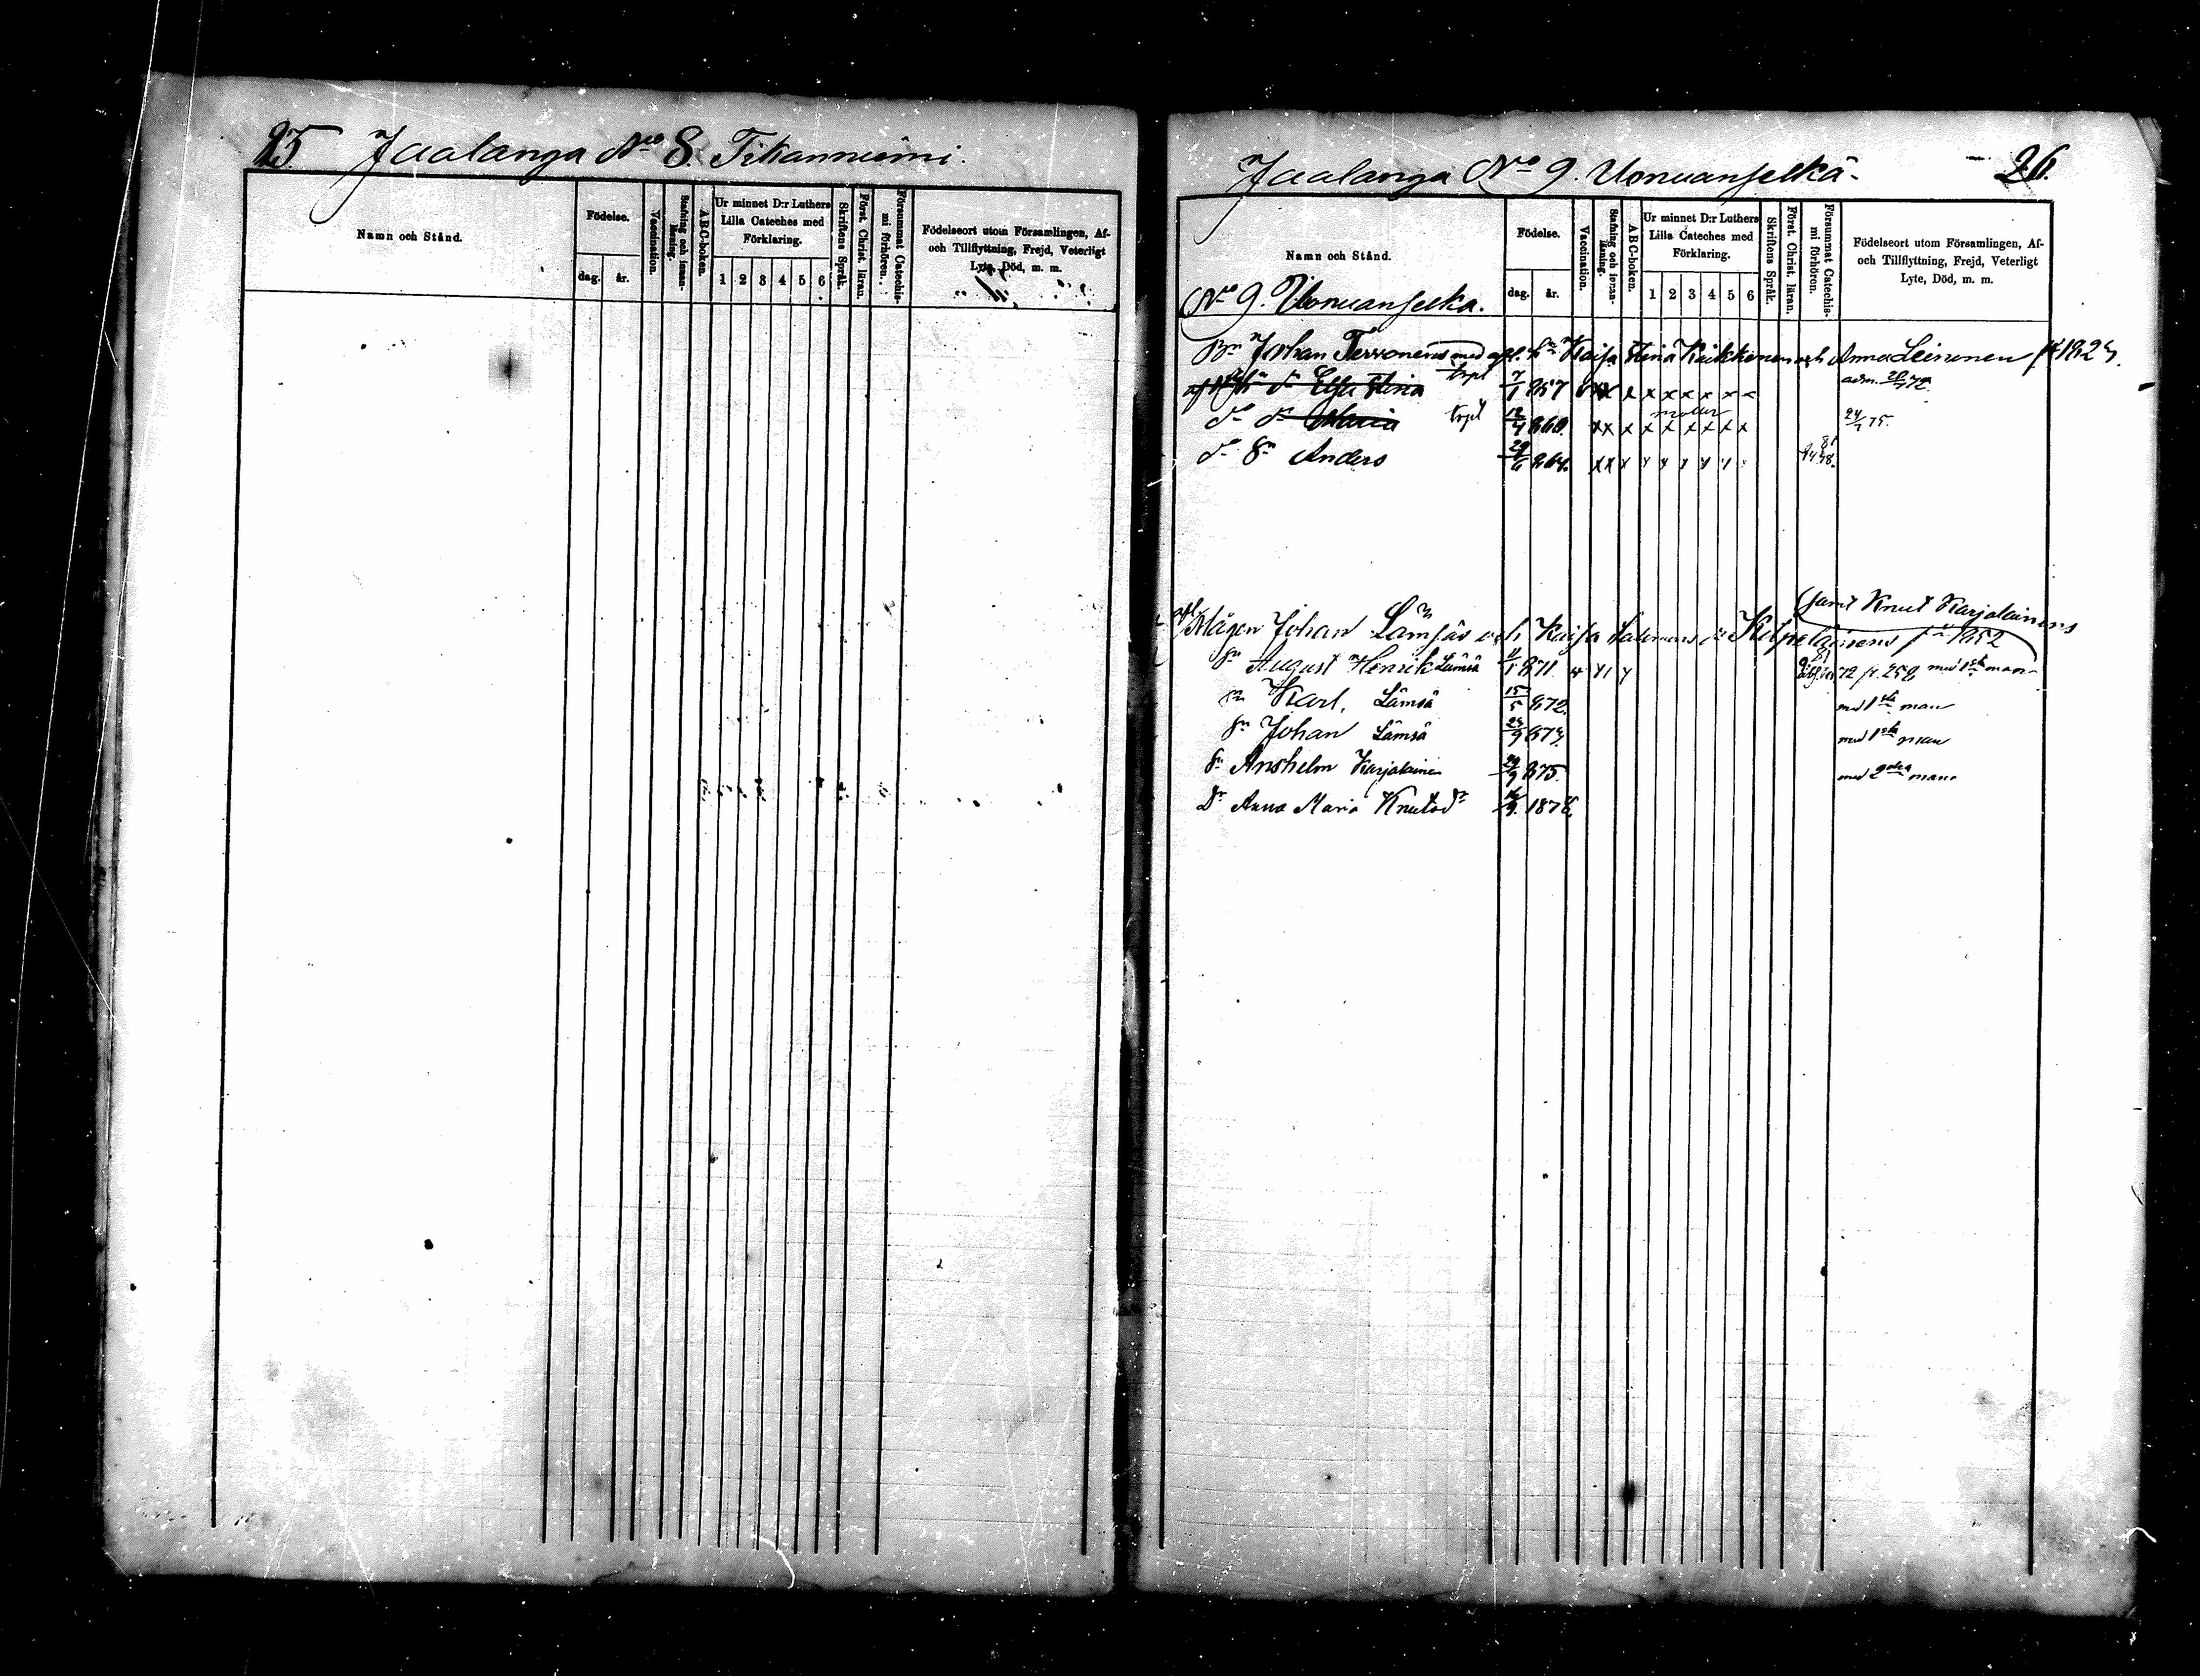 25 Jaalanga No 8. Tikanniemi.
Namn och Stånd.
Födelse.
dag. år.
Vaccination.
Stafning och innan-läsning.
ABC-boken.
Ur minnet D:r Luthers
Lilla Cateches med
Förklaring.
1 2 3 4 5 6
Skriftens Språk.
Först. Christ. läran.
Försummat Catechis-
mi förhören.
Födelseort utom Församlingen, Af-
och Tillflyttning, Frejd, Veterligt
Lyte, Död, m. m.
Jaalanga No 9. Uonuanselkä. 26.
Namn och Stånd.
Födelse.
dag. år.
Vaccination.
Stafning och innan-
läsning.
ABC-boken.
Ur minnet D:r Luthers
Lilla Cateches med
Förklaring.
1 2 3 4 5 6
Skriftens Språk.
Först. Christ. läran.
Försummat Catechis-
mi förhören.
Födelseort utom Församlingen, Af-
och Tillflyttning, Frejd, Veterligt
Lyte, Död, m. m.
No 9. Uonuanselkä.
Bn Johan Tervonens med Kaisa Stina Keikkonen och Anna Leinonen
dr Elsa Stina 7/1 857 x x x x x x x x adm. 72
dr Maria 12/4 860. x x x x x x x x x 24/7 75.
Sn Anders 29/6 864. x x
samt Knut Karjalainens
afl. Mågen Johan Lämsäs och Kaisa Kilpeläinens 1952
Sn August Henrik Lämsä 11/1 871 72 p. 258 med 1sta man
Sn Karl. Lämsä 15/5 872. med 1sta man
Sn Johan Lämsä 873. med 1sta man
Sn Anshelm Karjalainen 875. med 2dra man
Dr Anna Maria Knutsdr 1878.